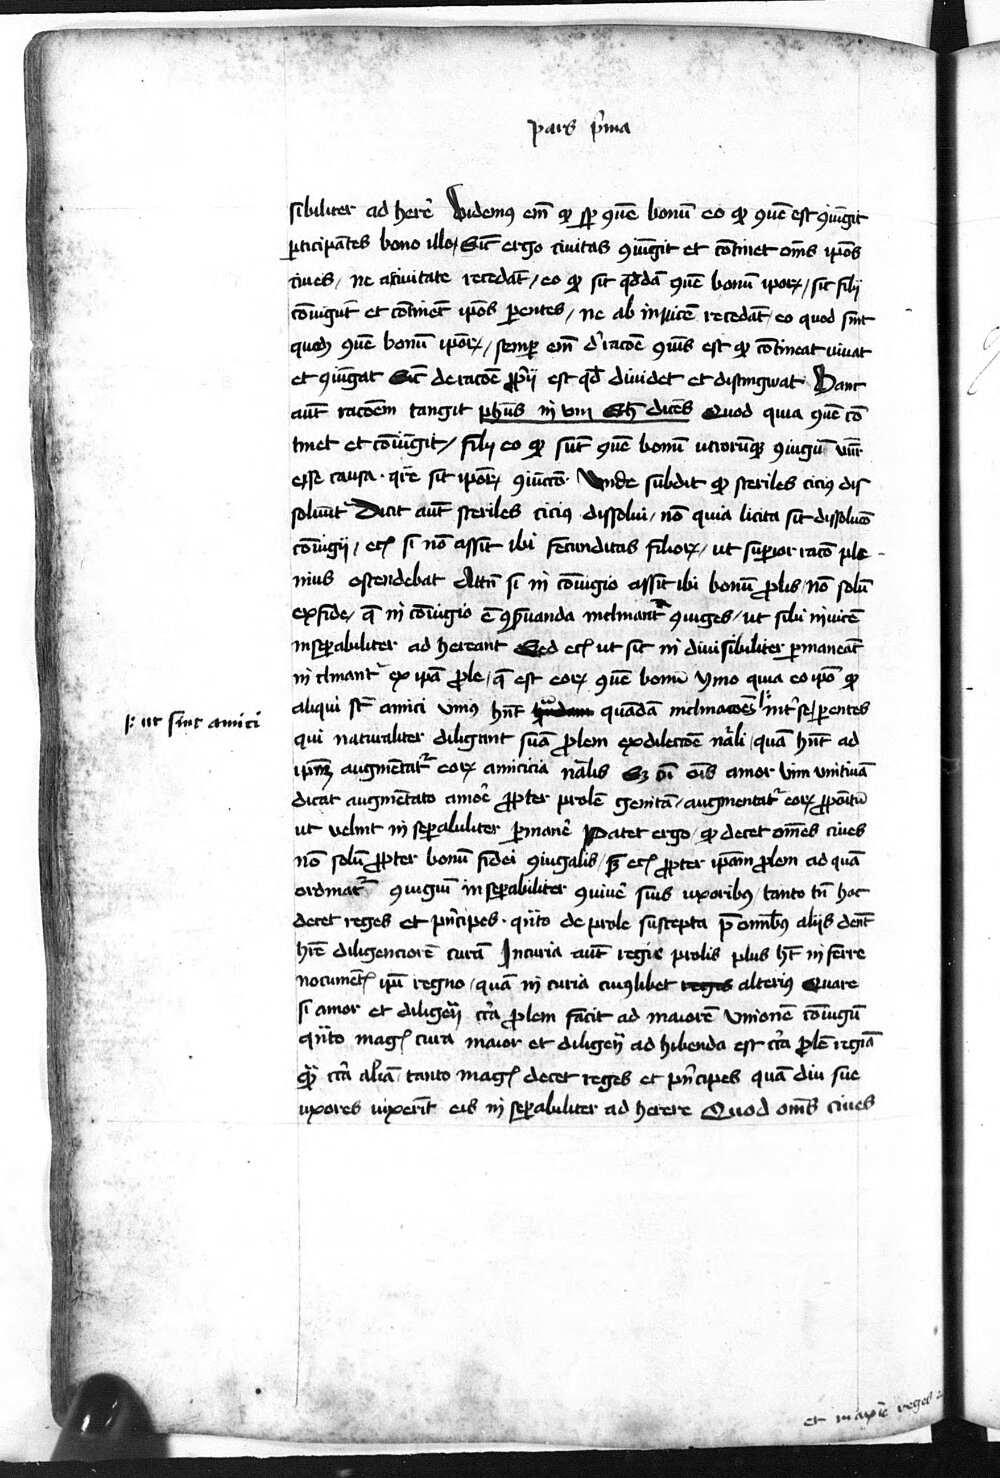 pars p̄ma
sibiliter ad herē Videmꝯ em̄ qꝫ sꝑ ꝯue bonū eo qꝫ ꝯue est ꝯiūgit
ꝑticipātes bono illo / Sic̄ ergo ciuitas ꝯiūgit et cōtinet om̄s ip̄os
ciues / ne a ciuitate recedāt / eo qꝫ sit q̄ddā ꝯue bonū ip̄oꝝ / sic filij
cōiūgūt et cōtinēt ip̄os ꝑentes / ne ab inuicē recedāt / eo quod sint
quoddā ꝯue bonū ip̄oꝝ / semꝑ em̄ d' rac̄oe ꝯuīs est qꝫ cōtineat uniat
et ꝯiūgat Sic̄ de rac̄oe ꝓp̄ij est qd̄ diuidet et distingwat Hanc
aūt rac̄oem tangit ph̄us in viij Eth̄ dicēs Quod quia ꝯue cō
tinet et cōiūgit / filij eo qꝫ sūt ꝯue bonū utrorūqꝫ ꝯiugū vnr̄
esse causa . qr̄e sit ip̄oꝝ ꝯiūcc̄o . Vnde subdit qꝫ steriles ciciꝯ dis
soluūt̄ Dicit aūt steriles ciciꝯ dissolui / nō quia licita sit dissoluc̄o
cōiugij / eciā si nō assit ibi fecunditas filioꝝ / ut suꝑior rac̄o ple
nius ostendebat Attn̄ si in cōiugio assit ibi bonū ꝓlis / nō solū
ex fide / q̄ in cōiugio ē ꝯẜuanda inclinant̄ ꝯiuges / ut sibi inuicē
inseꝑabiliter ad hereant Sed eciā ut sic in diuisibiliter ꝑmaneāt
in clinant̄ ex ip̄a ꝓle / q̄ est eoꝝ ꝯue bonū ymo quia eo ip̄o qꝫ
aliqui st̄ amici vniꝯ hn̄t quādā inclinac̄oēs int̄ se / ꝑentes
s: ut sint amici
qui naturaliter diligunt suā ꝓlem ex dilecc̄oe nāli / quā hn̄t ad
ip̄am augmētat̄ eoꝝ amicicia nālis Sꝫ cū oīs amor vim vnitiuā
dicat augmētato amōe ꝓpter prolē genitā / augmentat̄ eoꝝ ꝓpoītū
ut velint in seꝑabiliter ꝑmanē Patet ergo / qꝫ decet om̄es ciues
nō solū ꝓpter bonū fidei ꝯiugalis / sꝫ eciā ꝓpter ip̄am ꝓlem ad quā
ordinat̄ ꝯiugiū in seꝑabiliter ꝯuiue suis uxoribꝯ / tanto tn̄ hoc
decet reges et pn̄cipes . qn̄to de prole suscepta p̄ om̄ibꝯ alijs dent̄
hr̄e diligenciorē curā Incuria aūt regie prolis plus hꝫ in ferre
nocumēti ip̄i regno / quā in curia cuiꝯlibet alteriꝯ Quare
si amor et diligen̄ cc̄a ꝓlem facit ad maiorē vnionē cōiugū
qn̄to magꝭ cura maior et diligen̄ ad hibenda est cc̄a ꝓlē regiā
qꝫ cc̄a aliā / tanto magꝭ decet reges et pn̄cipes quā diu sue
uxores uixerīt eis in seꝑabiliter ad herere Quod om̄s ciues
et maxīe reges